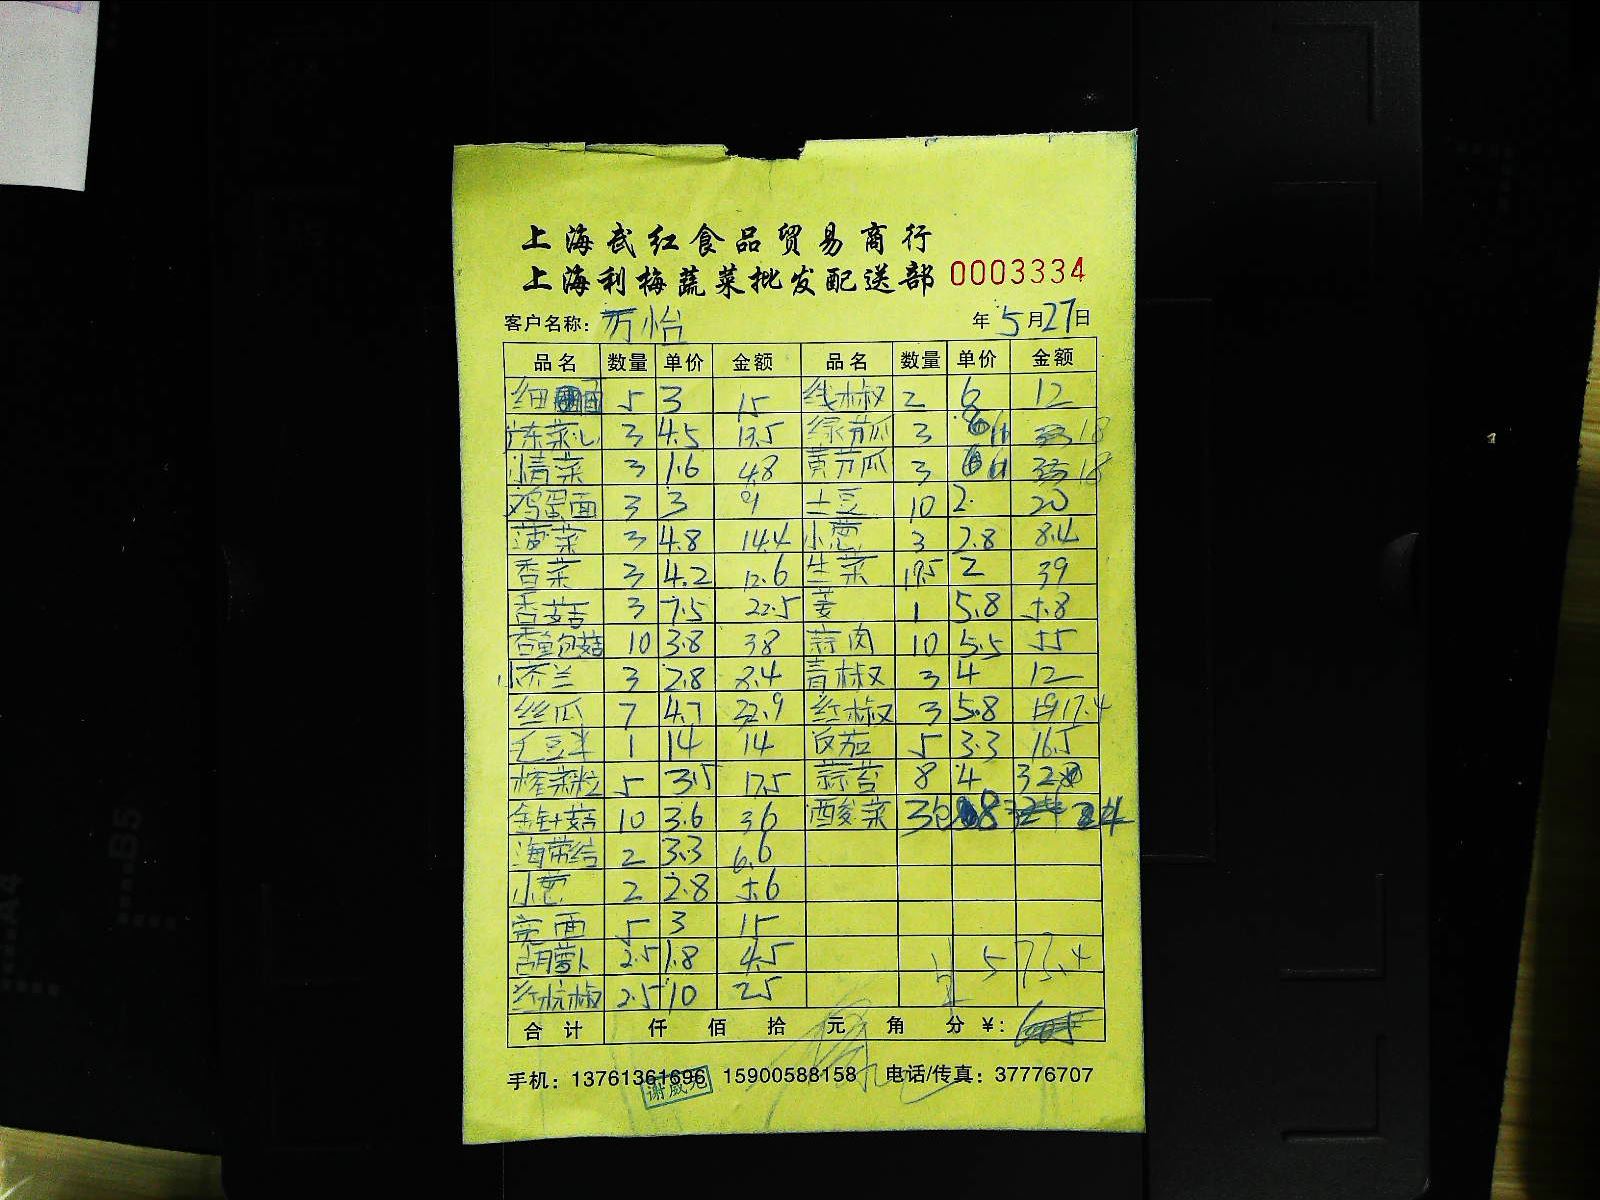 上海武红食品贸易商行
上海利梅蔬菜批发配送部 0003334
客户名称: 万怡 年 5 月 27 日
品名 数量 单价 金额 品名 数量 单价 金额
细面 5 3 15 线椒 2 6 12
广东菜心 3 4.5 13.5 绿节瓜 3 6 18
小青菜 3 1.6 4.8 黄节瓜 3 6 18
鸡蛋面 3 3 9 土豆 10 2. 20
菠菜 3 4.8 14.4 小葱 3 2.8 8.4
香菜 3 4.2 12.6 生菜 2 39
香菇 3 7.5 22.5 姜 1 5.8 5.8
鲍菇 10 3.8 38 蒜肉 10 5.5 55
小芥兰 3 2.8 8.4 青椒 3 4 12
丝瓜 7 4.7 32.9 红椒 3 5.8 17.4
毛豆米 1 14 14 反茄 5 3.3 16.5
榨菜粒 5 3.5 17.5 蒜苔 8 4 32
金针菇 10 3.6 36 酸菜 8 24
海带结 2 3.3 6.6
小葱 2 2.8 5.6
宽面 5 3 15
胡萝卜 2.5 1.8 4.5 573.4
红杭椒 2.5 10 25
合计 仟 佰 拾 元 角 分 ¥:
手机: 13761361696 15900588158 电话/传真: 37776707